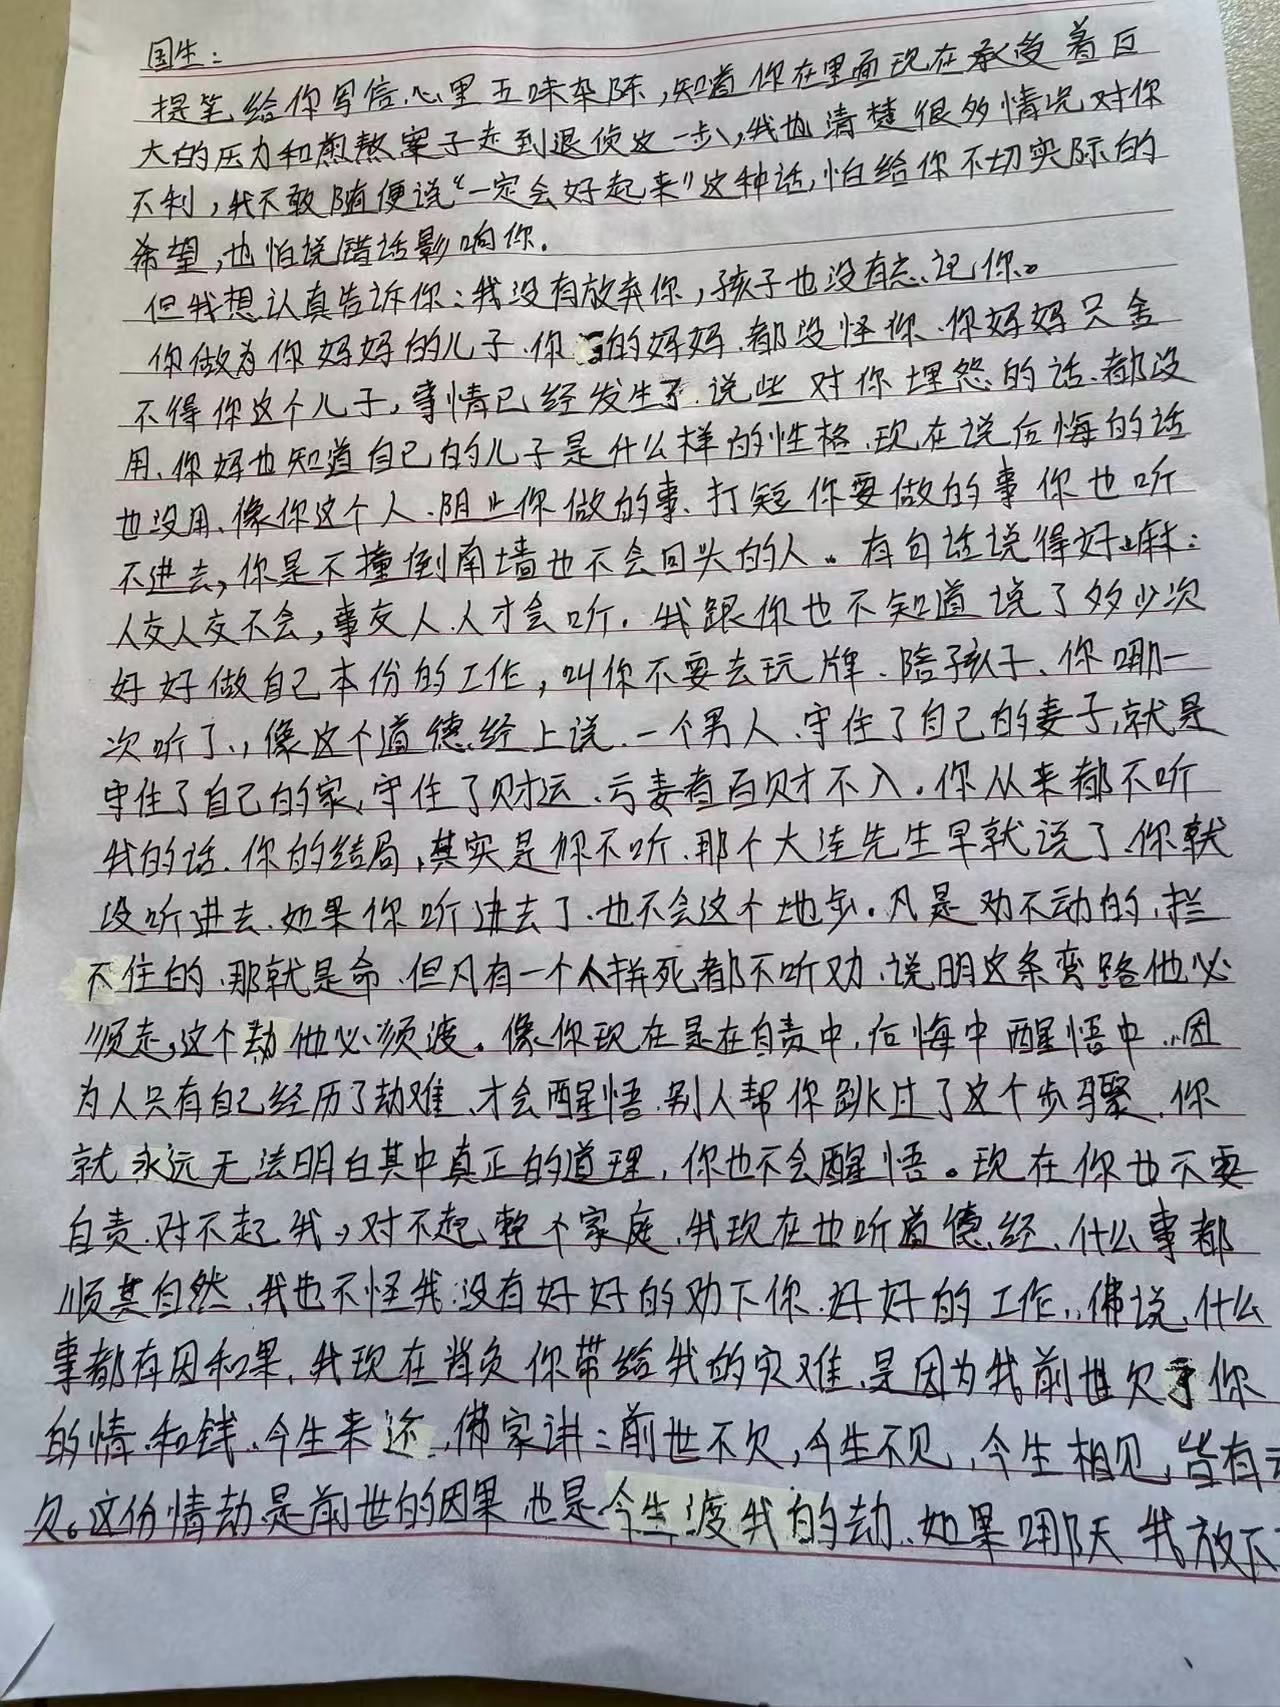 国生：
提笔给你写信.心里五味杂陈,知道你在里面现在承受着巨
大的压力和煎熬案子走到退侦这一步,我也清楚很多情况对你
不利,我不敢随便说“一定会好起来”这种话,怕给你不切实际的
希望,也怕说错话影响你.
但我想认真告诉你:我没有放弃你,孩子也没有忘记你。
你做为你妈妈的儿子.你的妈妈.都没怪你.你妈妈只舍
不得你这个儿子,事情已经发生了.说些对你埋怨的话.都没
用、你妈也知道自己的儿子是什么样的性格.现在说后悔的话
也没用、像你这个人.阻止你做的事、打短你要做的事你也听
不进去,你是不撞倒南墙也不会回头的人。有句话说得好嘛:
人交人交不会,事交人.人才会听.我跟你也不知道说了多少次
好好做自己本份的工作,叫你不要去玩牌.陪孩子、你哪一
次听了.,像这个道德经上说.一个男人.守住了自己的妻子,就是
守住了自己的家,守住了财运、亏妻者百财不入.你从来都不听
我的话.你的结局,其实是你不听.那个大连先生早就说了.你就
没听进去.如果你听进去了.也不会这个地步.凡是劝不动的.拦
不住的.那就是命.但凡有一个人拼死都不听劝.说明这条弯路他必
须走,这个劫他必须渡.像你现在是在自责中,后悔中醒悟中..因
为人只有自己经历了劫难.才会醒悟.别人帮你跳过了这个步骤.你
就永远无法明白其中真正的道理,你也不会醒悟。现在你也不要
自责.对不起我,对不起整个家庭.我现在也听道德经.什么事都
顺其自然.我也不怪我没有好好的劝下你.好好的工作,.佛说.什么
事都有因和果.我现在背负你带给我的灾难.是因为我前世欠了你
的情.和钱.今生来还.佛家讲:前世不欠,今生不见,今生相见,皆有
欠。这份情劫是前世的因果也是今生渡我的劫.如果哪天我放下